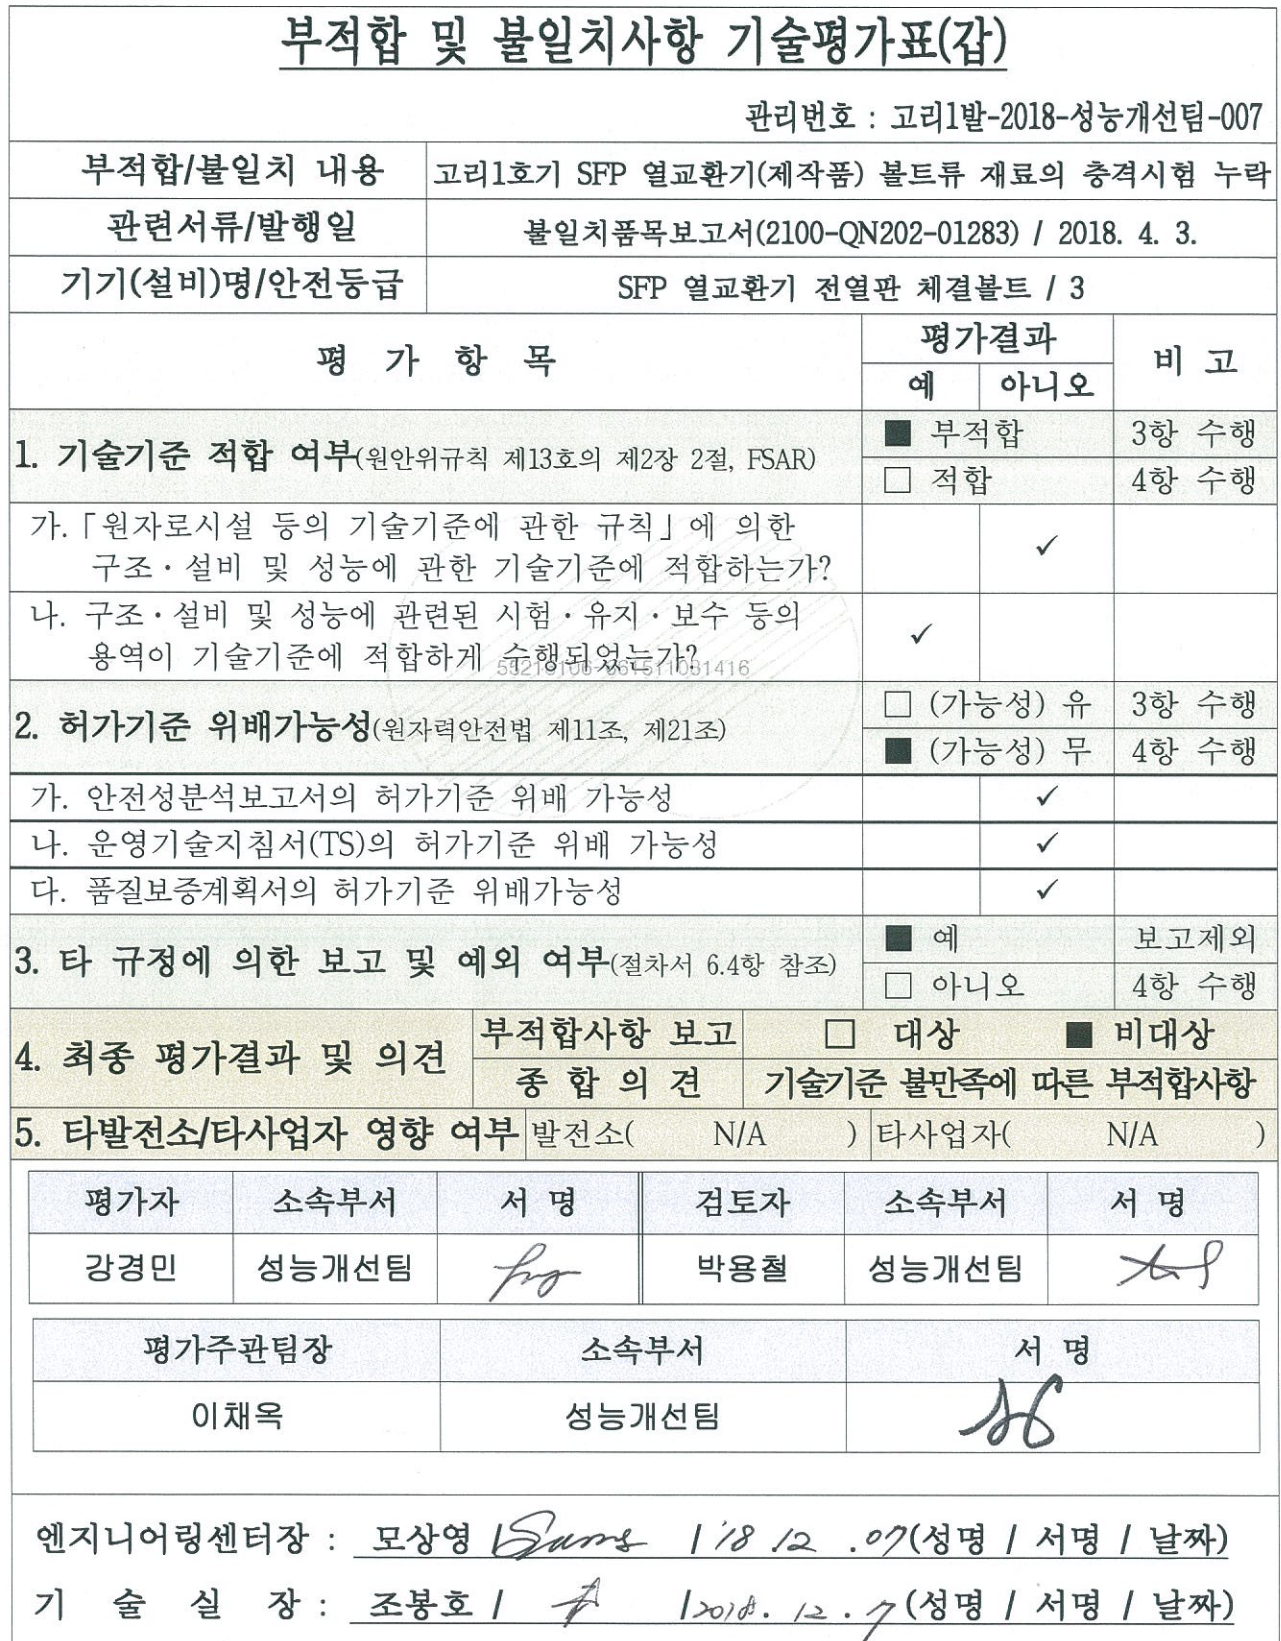 부적합 및 불일치사항 기술평가표(갑)
관리번호 : 고리1발-2018-성능개선팀-007
부적합/불일치 내용 고리1호기 SFP 열교환기(제작품) 볼트류 재료의 충격시험 누락
관련서류/발행일 불일치품목보고서(2100-QN202-01283) / 2018. 4. 3.
기기(설비)명/안전등급 SFP 열교환기 전열판 체결볼트 / 3
평 가 항 목 평가결과 비 고
예 아니오
1. 기술기준 적합 여부(원안위규칙 제13호의 제2장 2절, FSAR) ■ 부적합 3항 수행
□ 적합 4항 수행
가.「원자로시설 등의 기술기준에 관한 규칙」에 의한
구조·설비 및 성능에 관한 기술기준에 적합하는가? ✓
나. 구조·설비 및 성능에 관련된 시험·유지·보수 등의
용역이 기술기준에 적합하게 수행되었는가? ✓
2. 허가기준 위배가능성(원자력안전법 제11조, 제21조) □ (가능성) 유 3항 수행
■ (가능성) 무 4항 수행
가. 안전성분석보고서의 허가기준 위배 가능성 ✓
나. 운영기술지침서(TS)의 허가기준 위배 가능성 ✓
다. 품질보증계획서의 허가기준 위배가능성 ✓
3. 타 규정에 의한 보고 및 예외 여부(절차서 6.4항 참조) ■ 예 보고제외
□ 아니오 4항 수행
4. 최종 평가결과 및 의견 부적합사항 보고 □ 대상 ■ 비대상
종 합 의 견 기술기준 불만족에 따른 부적합사항
5. 타발전소/타사업자 영향 여부 발전소( N/A ) 타사업자( N/A )
평가자 소속부서 서 명 검토자 소속부서 서 명
강경민 성능개선팀 박용철 성능개선팀
평가주관팀장 소속부서 서 명
이채옥 성능개선팀
엔지니어링센터장 : 모상영 / / '18 .12 .07 (성명 / 서명 / 날짜)
기 술 실 장 : 조봉호 / / 2018. 12. 7 (성명 / 서명 / 날짜)